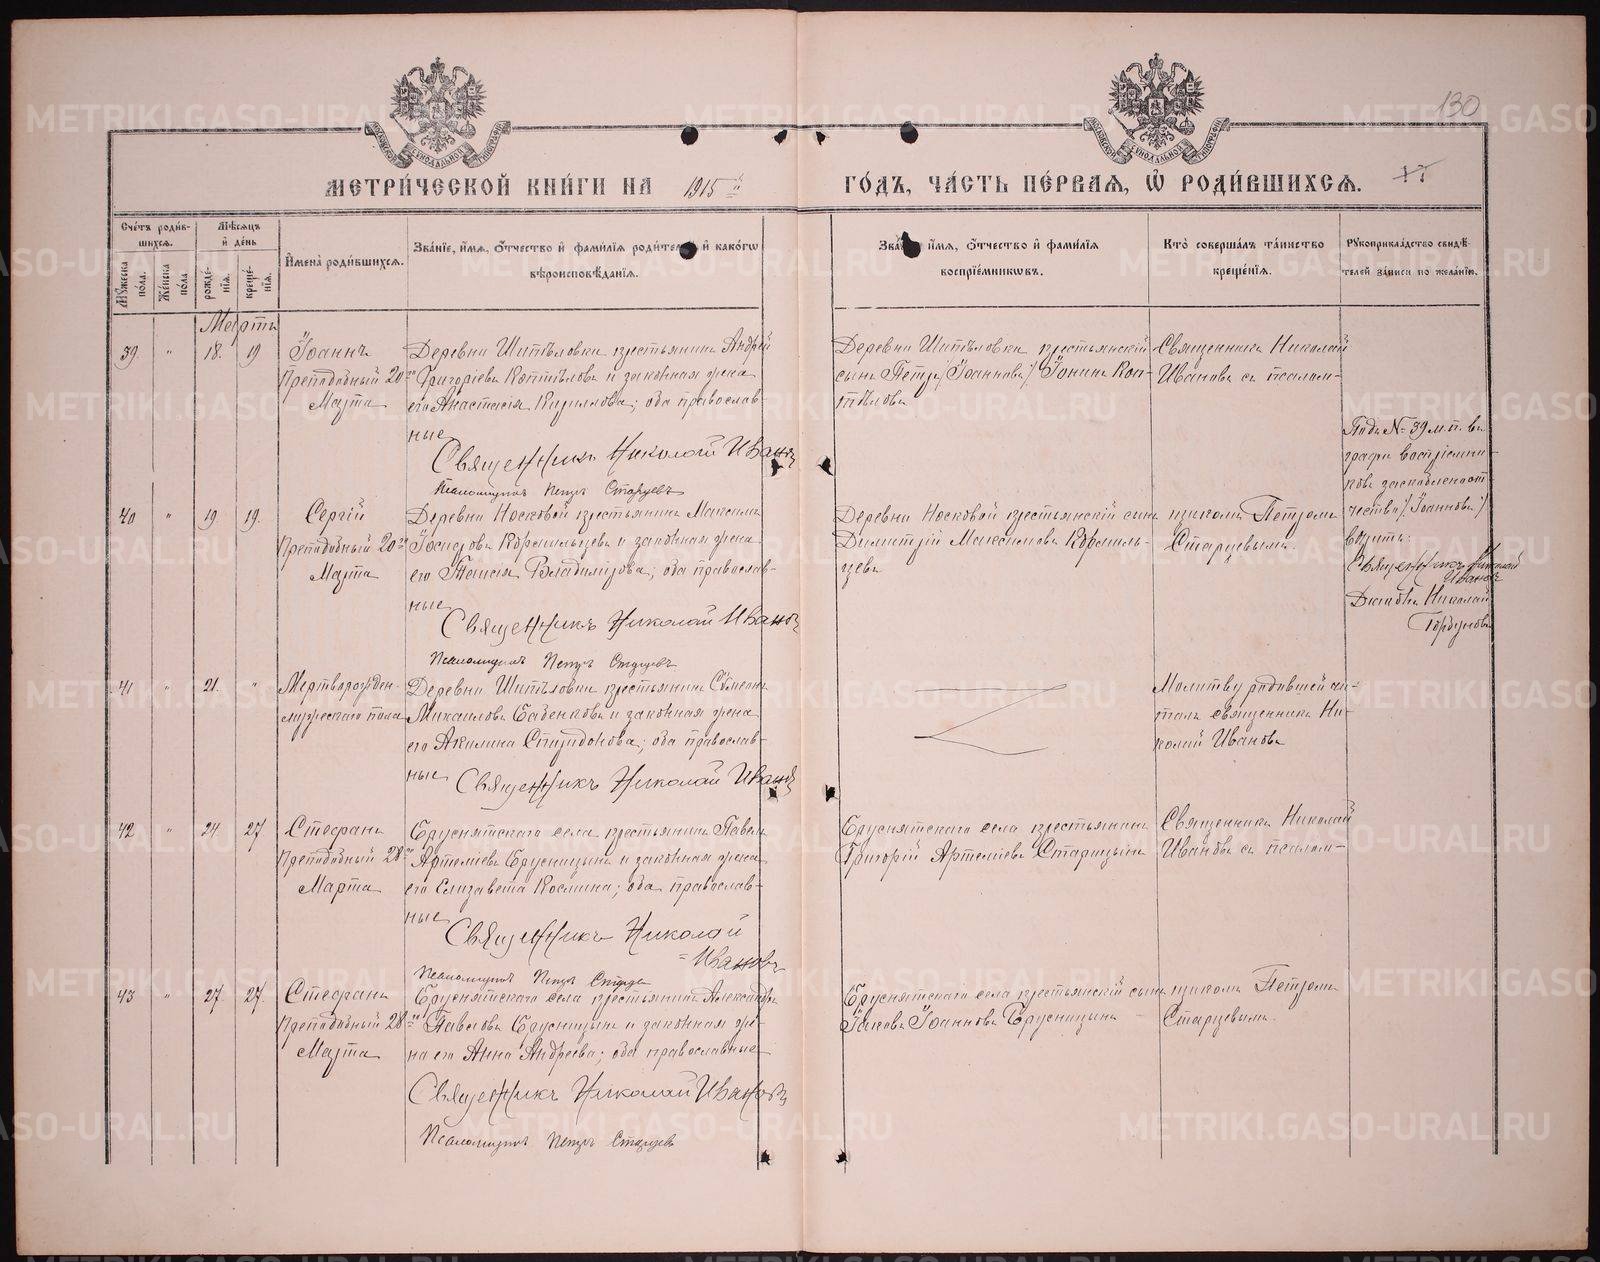 130
МОСКОВСКОЙ СѴНОДАЛЬНОЙ ТИПОГРАФІИ
МОСКОВСКОЙ СѴНОДАЛЬНОЙ ТИПОГРАФІИ
МЕТРИ́ЧЕСКОЙ КНИ́ГИ НА 1915 й ГО́ДЪ, ЧА́СТЬ ПЕ́РВАЯ, Ѽ РОДИ́ВШИХСЯ.
Сче́тъ роди́в-
шихся.
Мѣ́сяцъ
и҆ де́нь
Мꙋ́жеска по́ла.
Же́нска по́ла
рожде́-
нїѧ.
креще́-
нїѧ.
И҆мена̀ роди́вшихся.
Зва́нїе, и҆́мя, ѻ҆́тчество и҆ фами́лїя роди́телей и҆ како́гѡ
вѣроисповѣ́данїя.
Зва́нїе, и҆́мя, ѻ҆́тчество и҆ фами́лїя
воспрїе́мникѡвъ.
Кто̀ соверша́лъ та́инство
креще́нїя.
Рꙋкоприкла́дство свидѣ́-
телей за́писи по жела́нїю.
Мартъ
39 " 18. 19
Іоаннъ
Преподобный 20го
Марта
Деревни Шипѣловки крестьянинъ Андрей
Григоріевъ Коптѣловъ и законная жена
его Анастасія Кириллова; оба православ-
ные
Священникъ Николай Ивановъ
Псаломщикъ Петръ Старцевъ
Деревни Шипѣловки крестьянскій
сынъ Петръ /Іоанновъ/ Іонинъ Коп-
тѣловъ
Священникъ Николай
Ивановъ съ псалом-
40 " 19 19.
Сергій
Преподобный 20го
Марта
Деревни Носковой крестьянинъ Максимъ
Іосифовъ Кормильцевъ и законная жена
его Таисія Владимірова; оба православ-
ные
Священникъ Николай Ивановъ
Псаломщикъ Петръ Старцевъ
Деревни Носковой крестьянскій сынъ
Димитрій Максимовъ Кормиль-
цевъ
щикомъ Петромъ
Старцевымъ.
Подъ № 39 м.п. въ
графѣ воспріемни-
ковъ
чество /Іоанновъ/
Священникъ Николай
Ивановъ
Диаконъ Николай
Горбуновъ
41 " 21. "
Мертворожден.
мужескаго пола
Деревни Шипѣловки крестьянинъ Сѵмеонъ
Михаиловъ Бабенковъ и законная жена
его Акилина Спиридонова; оба православ-
ные
Священникъ Николай Ивановъ
Молитву родившей чи-
талъ священникъ Ни-
колай Ивановъ
42 " 24 27
Стефанъ
Преподобный 28го
Марта
Бруснятскаго села крестьянинъ Павелъ
Артеміевъ Брусницынъ и законная жена
его Елизавета Космина; оба православ-
ные
Священникъ Николай
Ивановъ
Псаломщикъ Петръ Старцевъ
Бруснятскаго села крестьянинъ
Григорій Артеміевъ Старицынъ
Священникъ Николай
Ивановъ съ псалом-
43 " 27. 27.
Стефанъ
Преподобный 28го
Марта
Бруснятскаго села крестьянинъ Александръ
Павловъ Брусницынъ и законная же-
на его Анна Андреева; оба православные
Священникъ Николай Ивановъ
Псаломщикъ Петръ Старцевъ
Бруснятскаго села крестьянскій сынъ
Іаковъ Іоанновъ Брусницынъ
щикомъ Петромъ
Старцевымъ.
METRIKI.GASO-URAL.RU